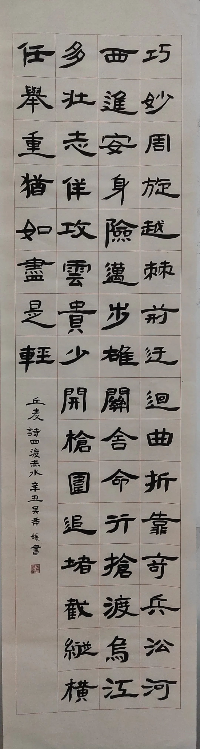 巧妙周旋越棘荊迂迴曲折靠奇兵沿河
西進安身險邁步雄關舍命行搶渡烏江
多壯志佯攻雲貴少開槍圍追堵截縱橫
任舉重猶如盡是輕
詩四渡赤水辛丑吳書